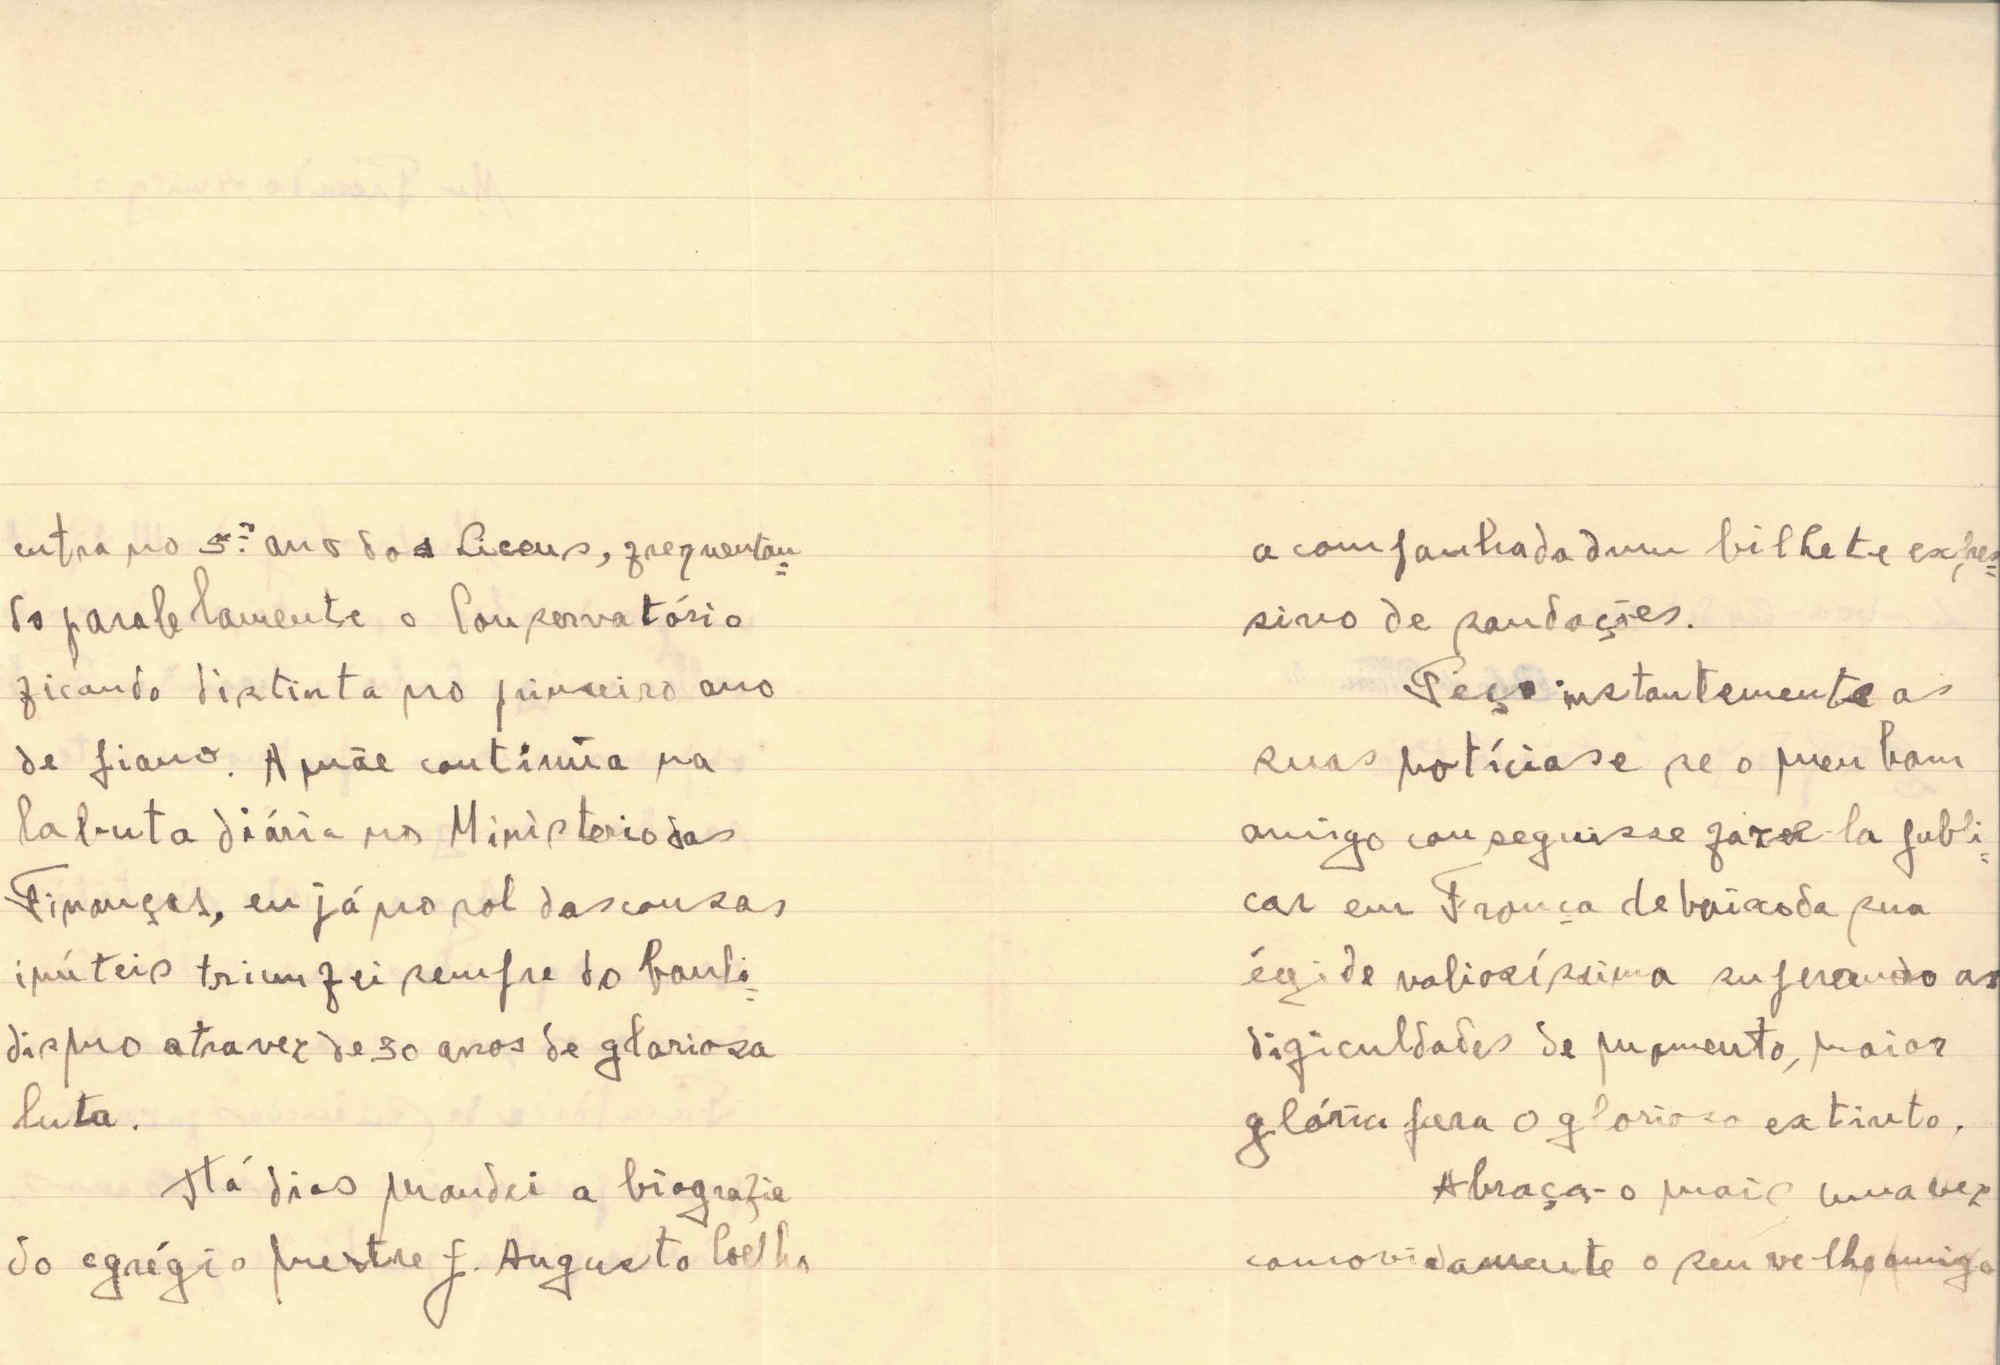 entra no 5.º ano dos Liceus, frequentan=
do paralelamente o Conservatório
ficando distinta no primeiro ano
de piano. A mãe continúa na
labuta diária no Ministerio das
Finanças, eu já no rol das cousas
inúteis triumfei sempre do banli=
dismo atravez de 50 anos de gloriosa
luta.
Há dias mandei a biografia
do egrégio mestre F. Augusto Coelho
acompanhada dum bilhete expres=
sivo de saudações.
Peço instantemente as
suas notícias e se o meu bom
amigo conseguisse fazê-la publi=
car em França debaixo da sua
égide valiosíssima superando as
dificuldades de momento, maior
glória para o glorioso extinto.
Abraça-o mais uma vez
comovidamente o seu velho amigo